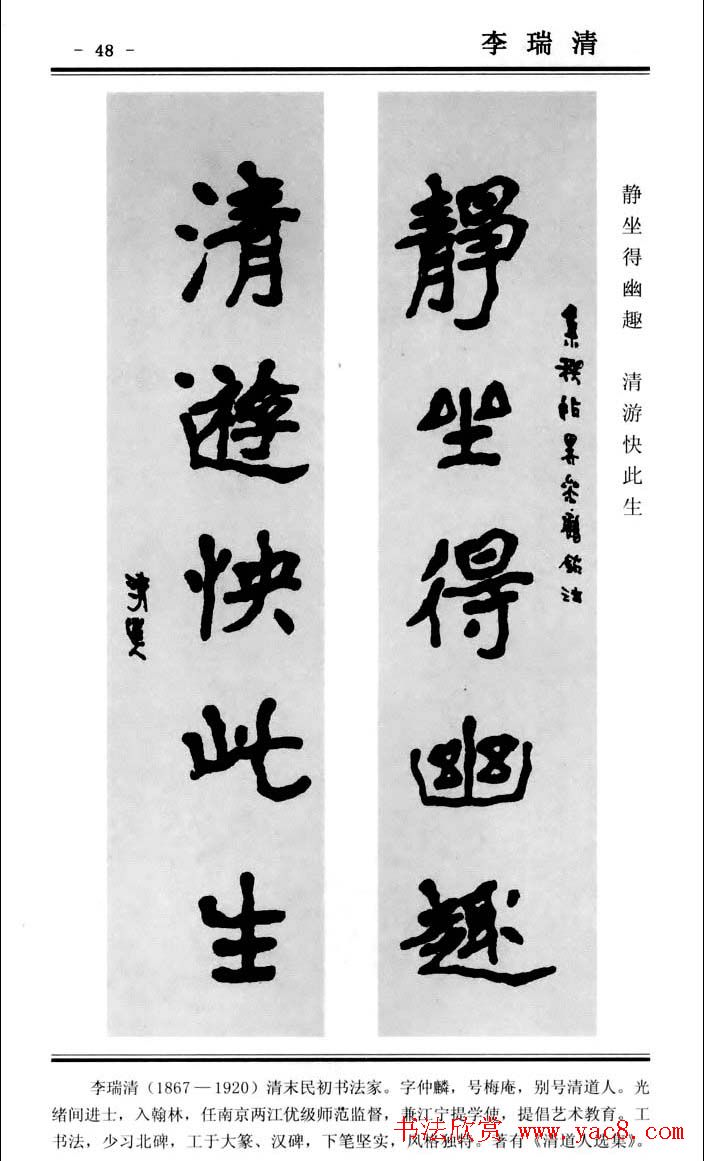 - 48 -
李瑞清
静坐得幽趣 清游快此生
靜坐得幽趣
集禊帖㫒宓鶴銘法
清遊快此生
清道人
李瑞清（1867—1920）清末民初书法家。字仲麟，号梅庵，别号清道人。光
绪间进士，入翰林，任南京两江优级师范监督，兼江宁提学使，提倡艺术教育。工
书法，少习北碑，工于大篆、汉碑，下笔坚实，风格独特。著有《清道人选集》。
书法欣赏 www.yac8.com